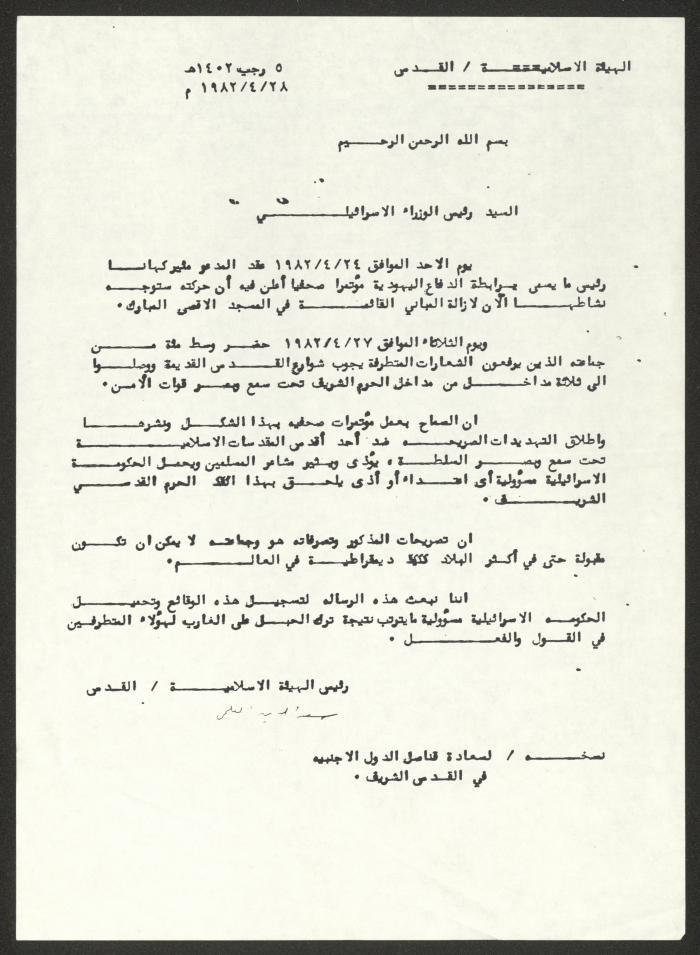 الهيئة الاسلاميـــة / القــدس
٥ رجب ١٤٠٢هـ
١٩٨٢/٤/٢٨ م
بسم الله الرحمن الرحـــيم
السيد رئيس الوزراء الاسرائيلـــي
يوم الاحد الموافق ١٩٨٢/٤/٢٤ عقد المدعو مئير كهانـــا
رئيس ما يسمى برابطة الدفاع اليهودية مؤتمرا صحفيا أعلن فيه أن حركته ستوجـــه
نشاطهـــا الآن لازالة المباني القائمـــة في المسجد الاقصى المبارك.
ويوم الثلاثاء الموافق ١٩٨٢/٤/٢٧ حضـــر وسط مئة مـــن
جماعته الذين يرفعون الشعارات المتطرفة يجوب شوارع القـــدس القديمة ووصلـــوا
الى ثلاثة مداخـــل من مداخل الحرم الشريف تحت سمع وبصـــر قوات الأمن.
ان السماح بعمل مؤتمرات صحفيه بهذا الشكـــل ونشرهـــا
واطلاق التهديدات الصريحـــه ضد أحد أقدس المقدسات الاسلاميـــة
تحت سمع وبصـــر السلطـــة، يؤذى ويثير مشاعر المسلمين ويحمل الحكومـــة
الاسرائيلية مسؤولية أى اعتـــداء أو أذى يلحـــق بهذا الحرم القدســـي
الشريـــف.
ان تصريحات المذكور وتصرفاته هو وجماعتـــه لا يمكن ان تكـــون
مقبولة حتى في أكثر البلاد ديمقراطيـــة في العالـــم.
اننا نبعث هذه الرساله لتسجيـــل هذه الوقائع وتحميـــل
الحكومـــه الاسرائيلية مسؤولية مايترتب نتيجة ترك الحبـــل على الغارب لهؤلاء المتطرفين
في القـــول والفعـــل.
رئيس الهيئة الاسلاميـــة / القـــدس
نسخـــه / لسعادة قناصل الدول الاجنبيه
في القـــدس الشريف.